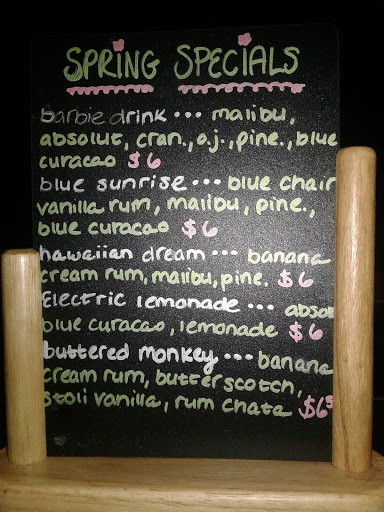 SPRING SPECIALS
barbie drink ••• malibu,
absolut, cran., o.j., pine., blue
curacao $6
blue sunrise ••• blue chair
vanilla rum, malibu, pine.,
blue curacao $6
hawaiian dream ••• banana
cream rum, malibu, pine. $6
Electric lemonade ••• absol
blue curacao, lemonade $6
buttered monkey •••• banana
cream rum, butterscotch,
stoli vanilla, rum chata $6